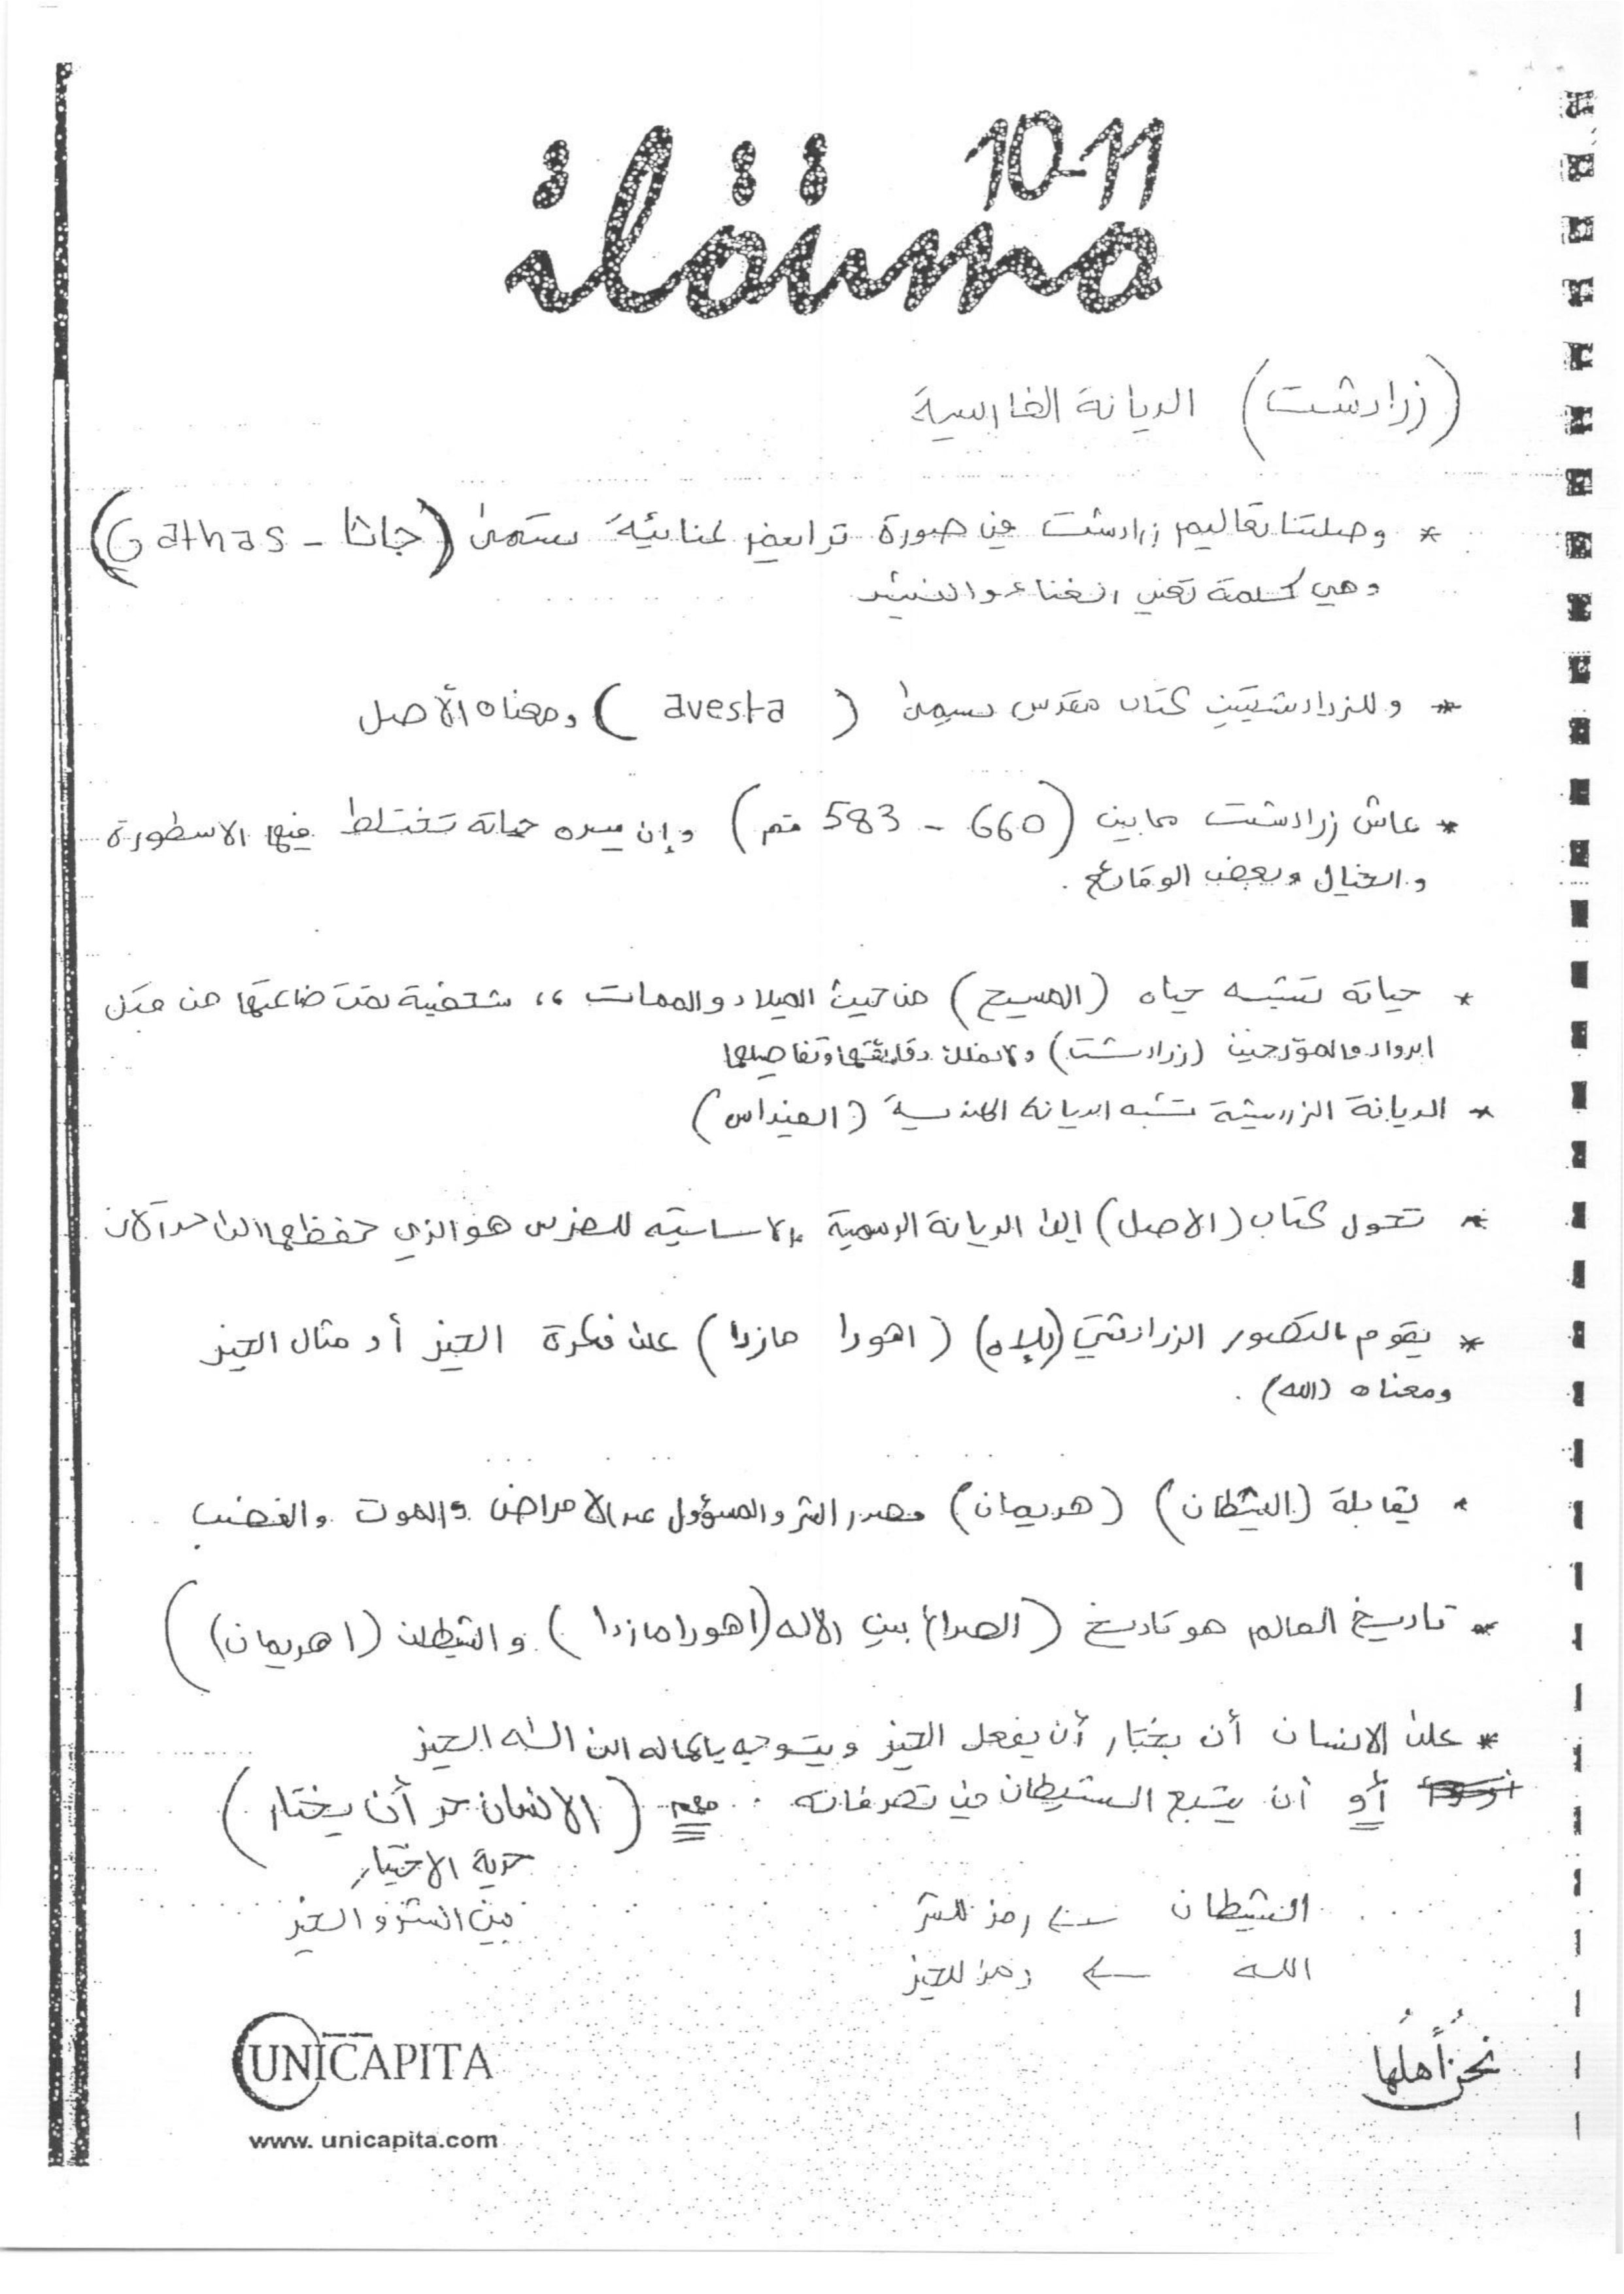 10-11
(زرادشت) الديانة الفارسية
* وصلتنا تعاليم زرادشت في صورة ترانيم غنائية تسمى (جاثا - Gathas)
وهي كلمة تعني الغناء والنشيد
* وللزرادشتيين كتاب مقدس يسمى (avesta) ومعناه الأصل
* عاش زرادشت ما بين (660 - 583 قم) وإن سيره حياته تختلط فيها الاسطورة
والخيال وبعض الوقائع.
* حياته تشبه حياه (المسيح) من حيث الميلاد والممات ،، شخصية تمت صناعتها من قبل
الرواد والمؤرخين (زرادشت) ولا نملك دقائقها وتفاصيلها
* الديانة الزردشية تشبه الديانة الهندسية (الفيداس)
* تحول كتاب (الاصل) الى الديانة الرسمية والاساسيه للفرس هو الذي حفظها الى حد الآن
* يقوم التصور الزرادشتي (للإله) (اهورا مازدا) على فكرة الخير أو مثال الخير
ومعناه (الله).
* يقابلة (الشيطان) (هريمان) مصدر الشر والمسؤول عن الامراض والموت والغضب
* تاريخ العالم هو تاريخ (الصراع بين الاله (اهورا مازدا) والشيطان (اهريمان))
* على الانسان أن يختار أن يفعل الخير ويتوجه باعماله الى الله الخير
أو أن يتبع الشيطان في تصرفاته. (الانسان حر أن يختار)
حرية الاختيار
بين الشر والخير
الشيطان ← رمز للشر
الله ← رمز للخير
نحن أهلها
UNICAPITA
www. unicapita.com